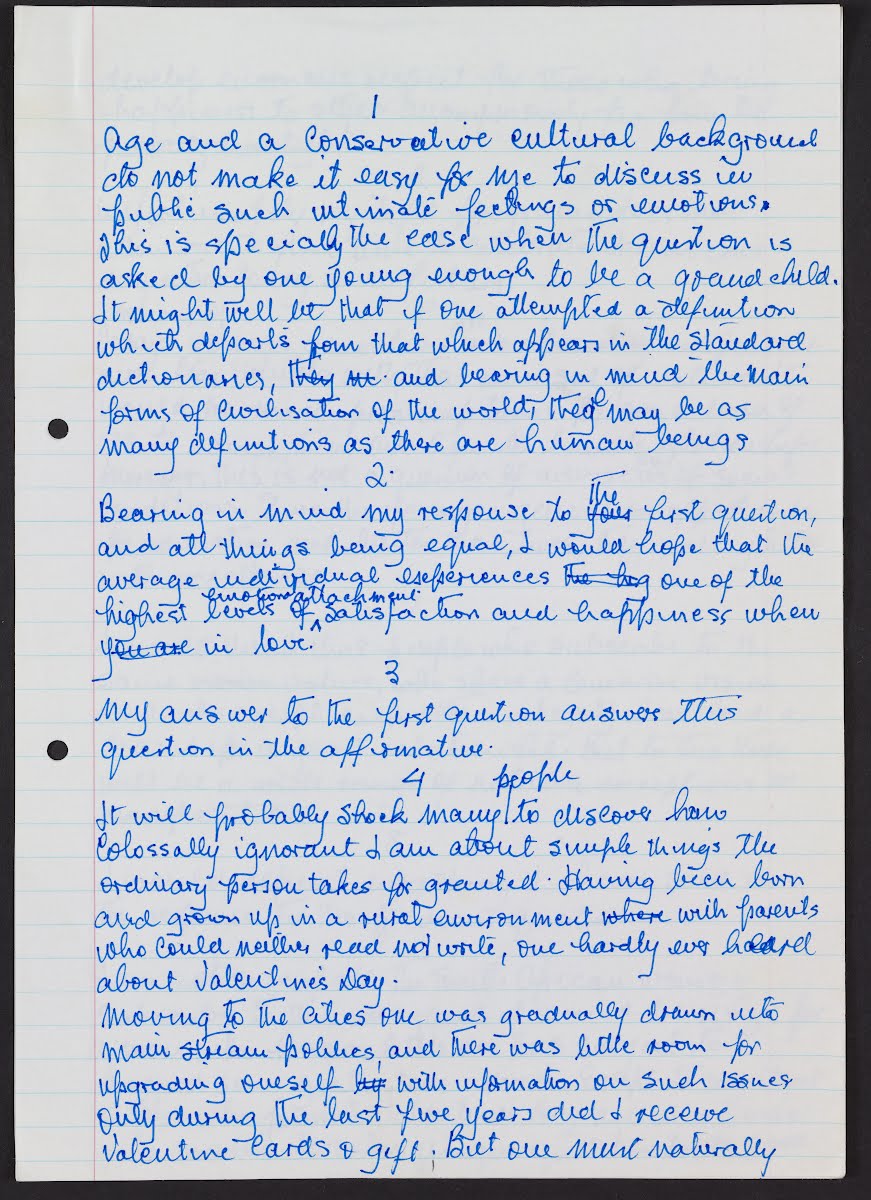 1
Age and a conservative cultural background
do not make it easy for me to discuss in
public such intimate feelings or emotions.
This is specially the case when the question is
asked by one young enough to be a grandchild.
It might well be that if one attempted a definition
which departs from that which appears in the standard
dictionaries, they and bearing in mind the main
forms of civilisation of the world, there may be as
many definitions as there are human beings
2.
Bearing in mind my response to your the first question,
and all things being equal, I would hope that the
average individual experiences one of the
highest levels of emotional attachment satisfaction and happiness when
you are in love.
3
My answer to the first question answers this
question in the affirmative.
4
It will probably shock many people to discover how
colossally ignorant I am about simple things the
ordinary person takes for granted. Having been born
and grown up in a rural environment where with parents
who could neither read nor write, one hardly ever heard
about Valentine's Day.
Moving to the cities one was gradually drawn into
main stream politics and there was little room for
upgrading oneself by with information on such issues
Only during the last five years did I receive
Valentine cards & gift. But one must naturally